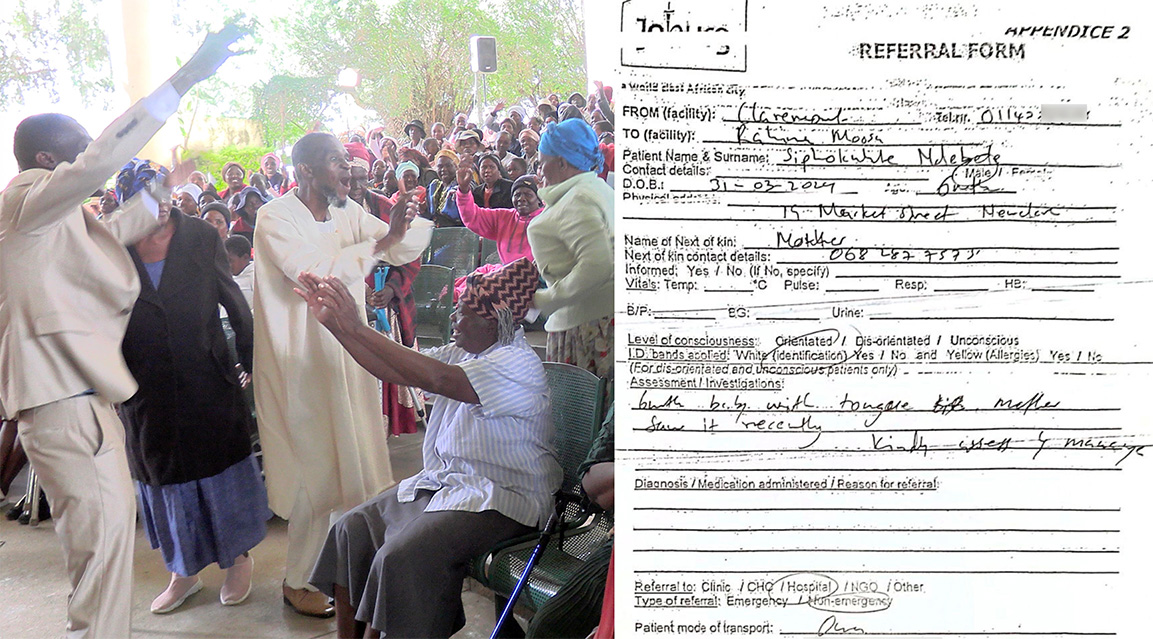 Joburg
APPENDICE 2
REFERRAL FORM
a World Best African city
FROM (facility): Claremont Tel.nr. 01142
TO (facility): Rahima Moosa
Patient Name & Surname:
Contact details: Male / Female
D.O.B.: 31-03-2024
Physical address:
19 Market street
Name of Next of kin: Mother
Next of kin contact details: 068 287
Informed: Yes / No (If No, specify)
Vitals: Temp: °C Pulse: Resp: HB:
B/P: BG: Urine:
Level of consciousness: Orientated / Dis-orientated / Unconscious
I.D. bands applied: White (identification) Yes / No and Yellow (Allergies) Yes / No
(For dis-orientated and unconscious patients only)
Assessment / Investigations:
baby with tongue Mother
saw it recently
Kindly assess & manage
Diagnosis / Medication administered / Reason for referral:
Referral to: Clinic / CHC / Hospital / NGO / Other
Type of referral: Emergency / Non-emergency
Patient mode of transport: